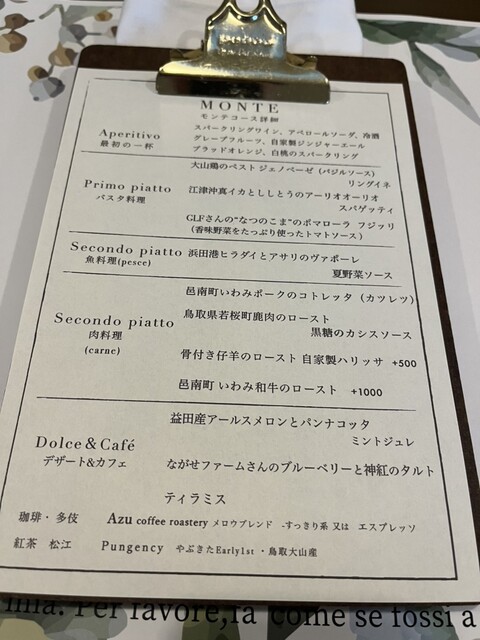 MONTE
モンテコース詳細
Aperitivo
最初の一杯
スパークリングワイン、アペロールソーダ、冷酒
グレープフルーツ、自家製ジンジャーエール
ブラッドオレンジ、白桃のスパークリング
Primo piatto
パスタ料理
大山鶏のペスト ジェノベーゼ (バジルソース)
リングイネ
江津沖真イカとししとうのアーリオオーリオ
スパゲッティ
GLFさんの"なつのこま"のポマローラ フジッリ
(香味野菜をたっぷり使ったトマトソース)
Secondo piatto
魚料理(pesce)
浜田港ヒラダイとアサリのヴァポーレ
夏野菜ソース
Secondo piatto
肉料理
(carne)
邑南町いわみポークのコトレッタ (カツレツ)
鳥取県若桜町鹿肉のロースト
黒糖のカシスソース
骨付き仔羊のロースト 自家製ハリッサ +500
邑南町 いわみ和牛のロースト +1000
Dolce&Café
デザート&カフェ
益田産アールスメロンとパンナコッタ
ミントジュレ
ながせファームさんのブルーベリーと神紅のタルト
ティラミス
珈琲・多伎 Azu coffee roastery メロウブレンド -すっきり系 又は エスプレッソ
紅茶 松江 Pungency やぶきたEarly1st ・鳥取大山産
Per favore,fa come se fossi a